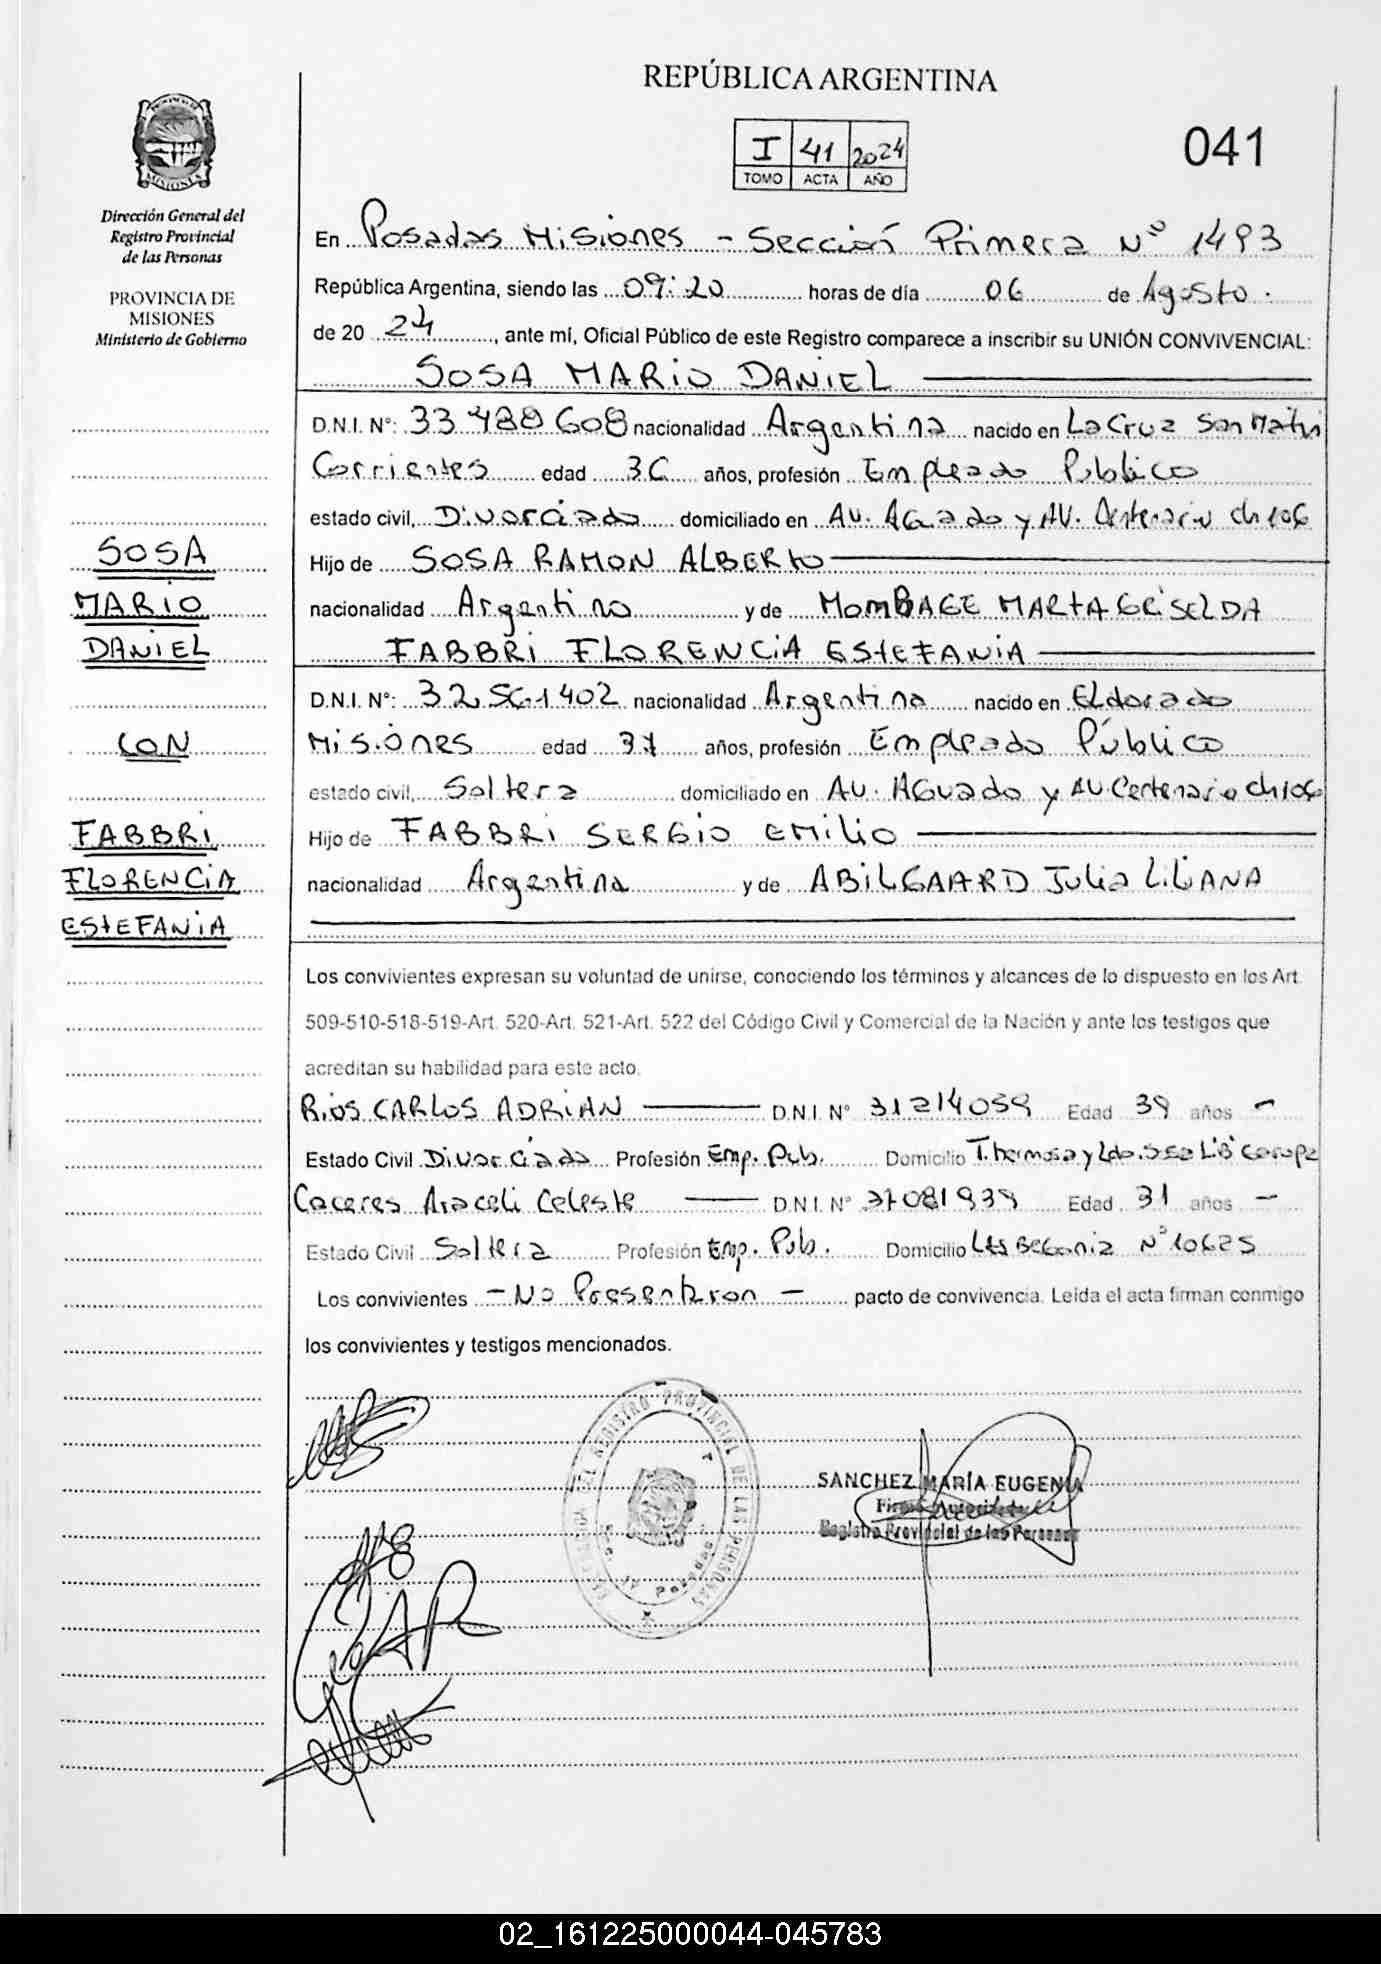 REPÚBLICA ARGENTINA
I 41 2024
TOMO ACTA AÑO
041
Dirección General del
Registro Provincial
de las Personas
PROVINCIA DE
MISIONES
Ministerio de Gobierno
En Posadas Misiones - Sección Primera N° 1493
República Argentina, siendo las 09:20 horas de día 06 de Agosto.
de 20 24, ante mí, Oficial Público de este Registro comparece a inscribir su UNIÓN CONVIVENCIAL:
SOSA MARIO DANIEL
D.N.I. N°: 33 488 608 nacionalidad Argentina nacido en La Cruz San Matin
Corrientes edad 36 años, profesión Empleado Público
estado civil, Divorciado domiciliado en AV. Aguado y AV. Centenario ch 106
Hijo de SOSA RAMON ALBERTO
nacionalidad Argentino y de MOMBAGE MARTA GRISELDA
FABBRI FLORENCIA ESTEFANIA
D.N.I. N°: 32.561.402 nacionalidad Argentina nacido en Eldorado
Misiones edad 37 años, profesión Empleado Público
estado civil, Soltera domiciliado en AV. AGuado y AV Centenario ch 106
Hijo de FABBRI SERGIO EMILIO
nacionalidad Argentina y de ABILGAARD Julia LILIANA
SOSA
MARIO
DANIEL
CON
FABBRI
FLORENCIA
ESTEFANIA
Los convivientes expresan su voluntad de unirse, conociendo los términos y alcances de lo dispuesto en los Art.
509-510-518-519-Art. 520-Art. 521-Art. 522 del Código Civil y Comercial de la Nación y ante los testigos que
acreditan su habilidad para este acto.
RIOS CARLOS ADRIAN D.N.I. N° 31214059 Edad 39 años -
Estado Civil Divorciado Profesión Emp. Pub. Domicilio T. hermosa y
Caceres Araceli Celeste D.N.I. N° 37081939 Edad 31 años -
Estado Civil Soltera Profesión Emp. Pub. Domicilio Las Begonia N° 10625
Los convivientes - No Presentaron - pacto de convivencia. Leída el acta firman conmigo
los convivientes y testigos mencionados.
DEL REGISTRO PROVINCIAL DE LAS PERSONAS
SANCHEZ MARÍA EUGENIA
Firma Autorizada
Registro Provincial de las Personas
02_161225000044-045783